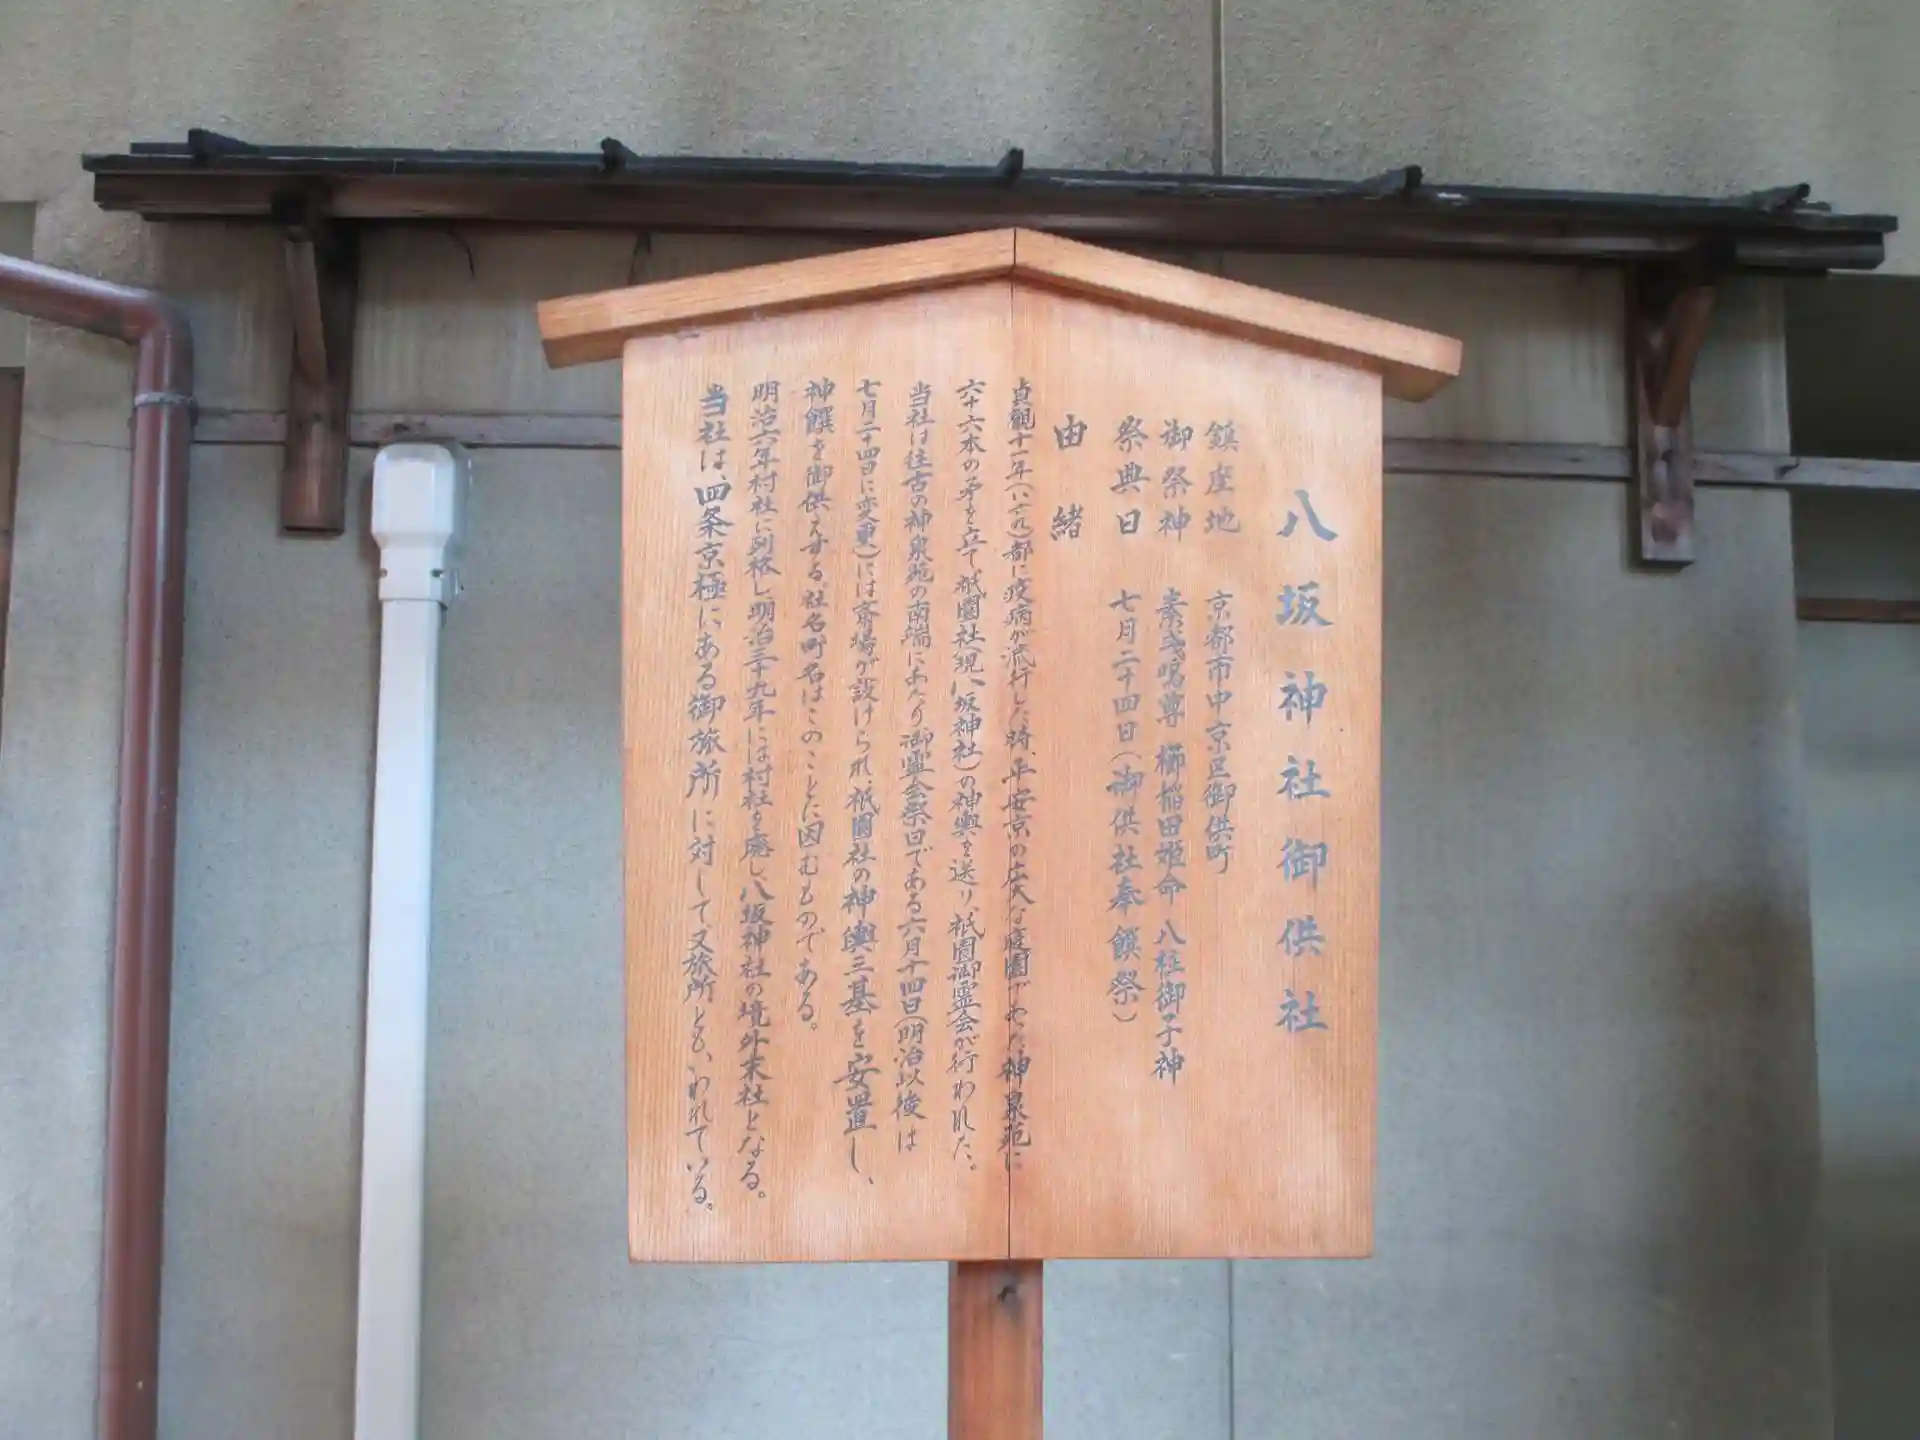 八坂神社御供社
鎮座地 京都市中京区御供町
御祭神 素戔嗚尊 櫛稲田姫命 八柱御子神
祭典日 七月二十四日(御供社奉饌祭)
由緒
貞観十一年(八六九)都に疫病が流行した時、平安京の広大な庭園であった神泉苑に
六十六本の矛を立て、祇園社(現八坂神社)の神輿を送り、祇園御霊会が行われた。
当社は往古の神泉苑の南端にあたり御霊会祭日である六月十四日(明治以後は
七月二十四日に変更)には斎場が設けられ、祇園社の神輿三基を安置し、
神饌を御供えする。社名町名はこのことに因むものである。
明治六年村社に列格し、明治三十九年には村社を廃し、八坂神社の境外末社となる。
当社は、四条京極にある御旅所に対して又旅所とも、いわれている。